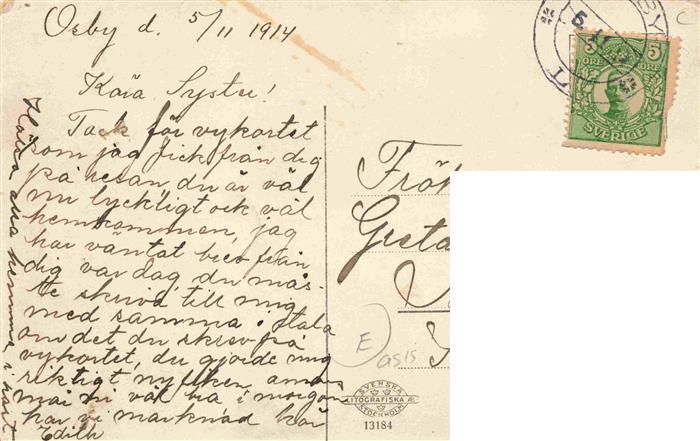 Osby d. 5/11 1914
Kära Syster!
Tack för vykortet
som jag fick från dig
på resan, du är väl
nu lyckligt och väl
hemkommen, jag
har väntat brev från
dig var dag, du mås-
te skriva till mig
med samma, i tala
om det du skrev på
vykortet, du gjorde mig
riktigt nyfiken, annars
mår vi väl bra i morgon
har vi marknad här
Edith
Hälsa alla hemma i
Frök
Greta
E
asis
5 ÖRE 5 ÖRE
SVERIGE
SVENSKA
LITOGRAFISKA AB
STOCKHOLM
13184
C